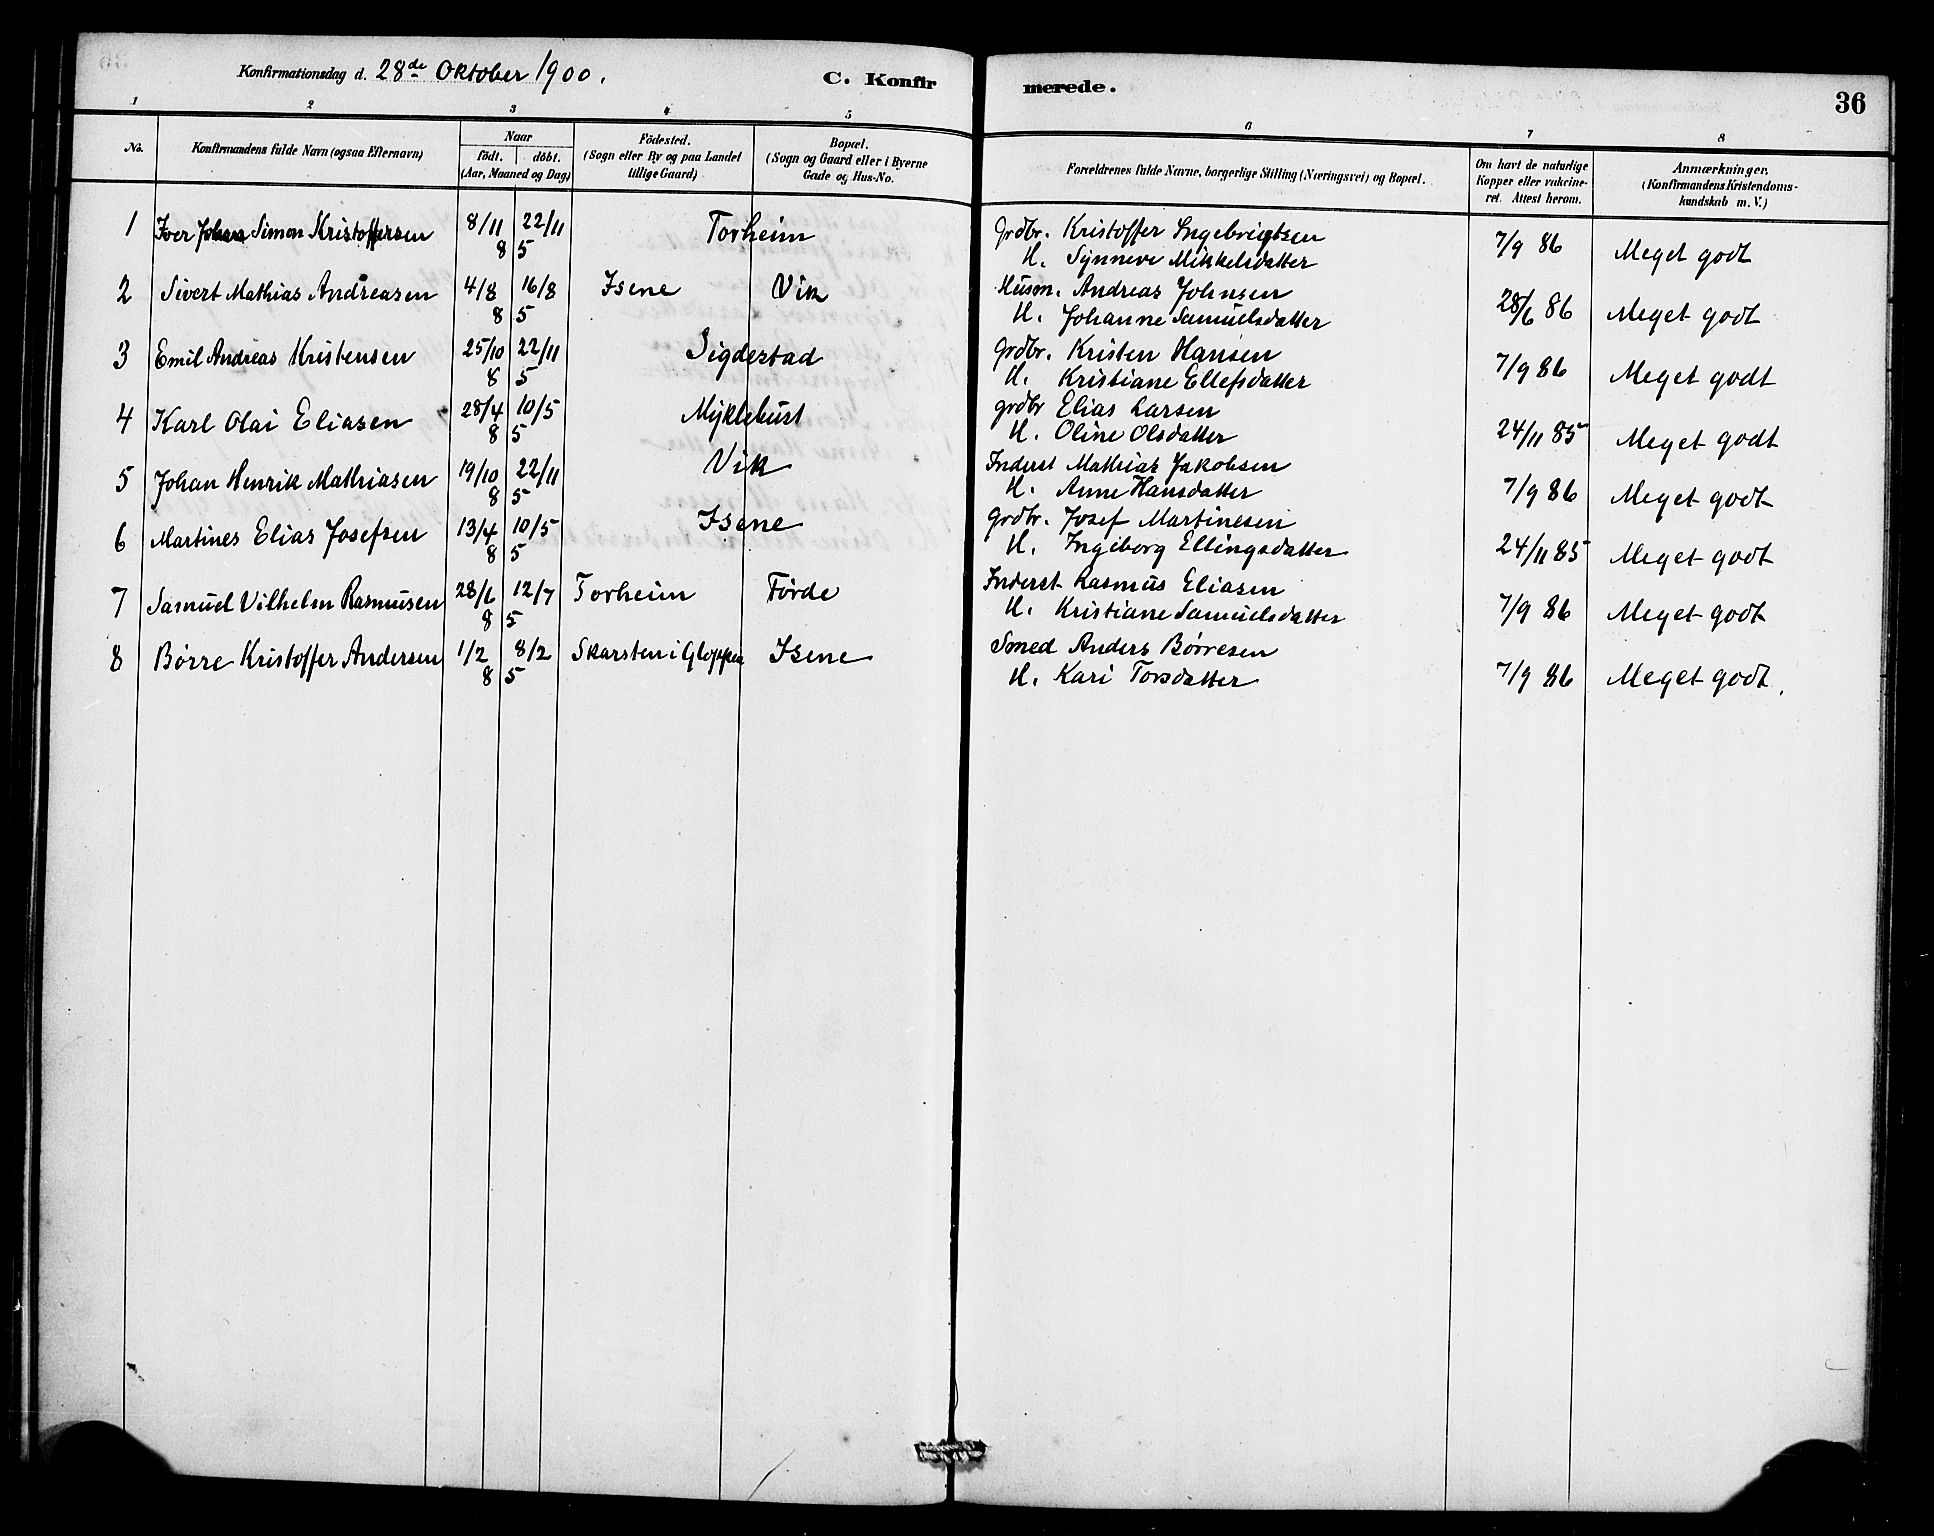 Konfirmationsdag d. 28de Oktober 1900.
C. Konfirmerede.
36
1 2 3 4 5 6 7 8
No.
Konfirmandens fulde Navn (ogsaa Efternavn)
Naar
födt. döbt.
(Aar, Maaned og Dag)
Födested.
(Sogn eller By og paa Landet
tillige Gaard)
Bopæl.
(Sogn og Gaard eller i Byerne
Gade og Hus-No.
Forældrenes fulde Navne, borgerlige Stilling (Næringsvei) og Bopæl.
Om havt de naturlige
Kopper eller vakcine-
ret. Attest herom.
Anmærkninger.
(Konfirmandens Kristendoms-
kundskab m. V.)
1 Iver Johan Simon Kristoffersen 8/11 22/11 Torheim Grdbr. Kristoffer Ingebrigtsen 7/9 86 Meget godt
8 5 H. Synneve Mikkelsdatter
2 Sivert Mathias Andreasen 4/8 16/8 Isene Vik Husm. Andreas Johnsen 28/6 86 Meget godt
8 5 H. Johanne Samuelsdatter
3 Emil Andreas Kristensen 25/10 22/11 Sigdestad Grdbr. Kristen Hansen 7/9 86 Meget godt
8 5 H. Kristiane Ellefsdatter
4 Karl Olai Eliasen 28/4 10/5 Myklebust grdbr Elias Larsen 24/11 85 Meget godt
8 5 H. Oline Olsdatter
5 Johan Henrik Mathiasen 19/10 22/11 Vik Inderst Mathias Jakobsen 7/9 86 Meget godt
8 5 H. Anne Hansdatter
6 Martines Elias Josefsen 13/4 10/5 Isene Grdbr. Josef Martinesen 24/11 85 Meget godt
8 5 H. Ingiborg Ellingsdatter
7 Samuel Vilhelm Rasmusen 28/6 12/7 Torheim Förde Inderst Rasmus Eliasen 7/9 86 Meget godt
8 5 H. Kristiane Samuelsdatter
8 Börre Kristoffer Andersen 1/2 8/2 Skarsten i Gloppen Isene Smed Anders Börresen 7/9 86 Meget godt.
8 5 H. Kari Torsdatter